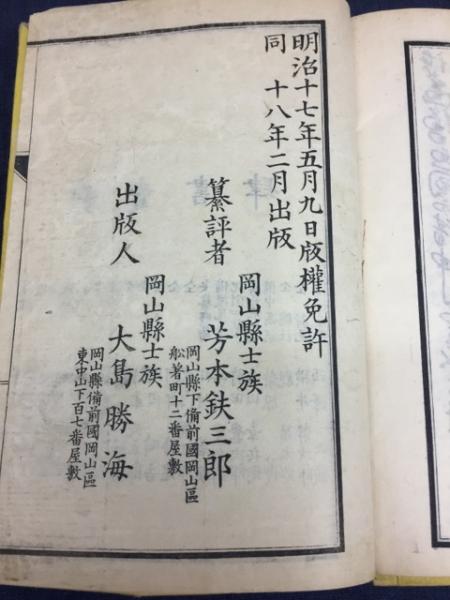 明治十七年五月九日版權免許
同 十八年二月出版
岡山縣士族
纂評者 芳本鉄三郎
岡山縣下備前國岡山區
舩著町十二番屋敷
岡山縣士族
出版人 大島勝海
岡山縣備前國岡山區
東中山下百七番屋敷